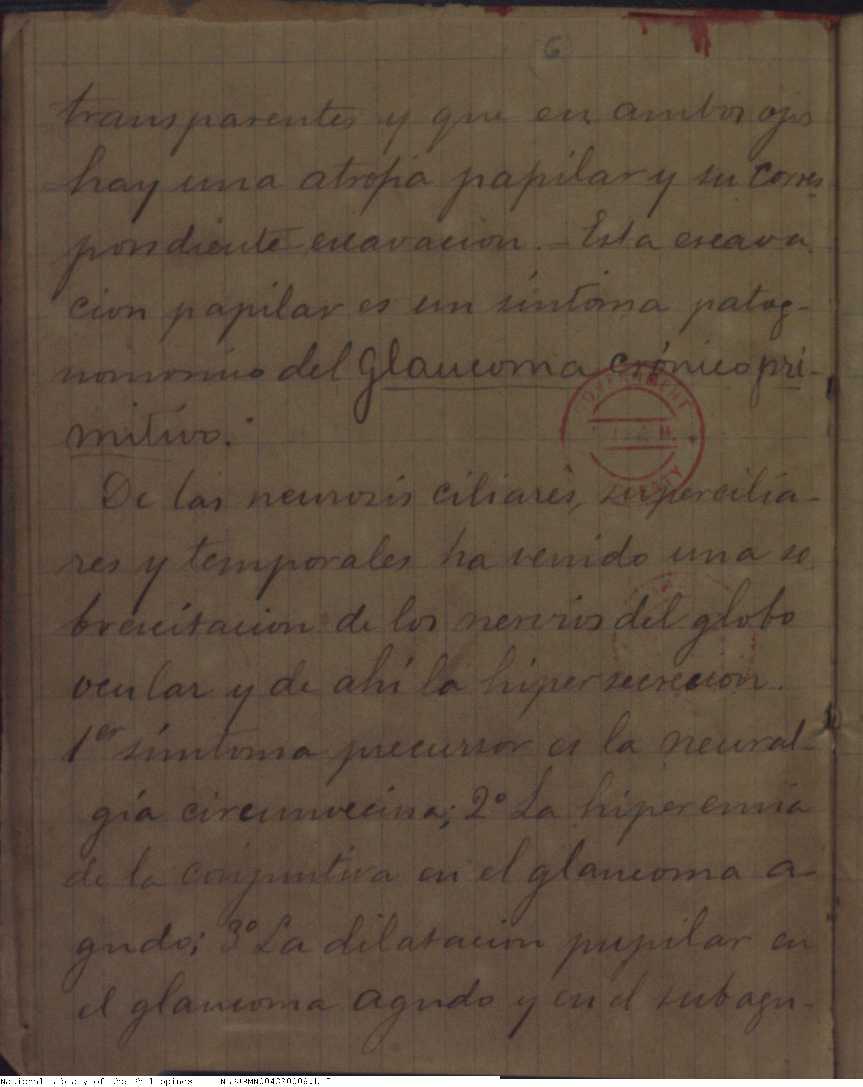 6
transparentes y que en ambos ojos
hay una atrofia papilar y su corres
pondiente escavacion. - Esta escava
cion papilar es un síntoma patog-
nomonico del Glaucoma crónico pri-
mitivo.
De las neurosis ciliares, supercilia-
res y temporales ha venido una so
brecsitacion de los nervios del globo
ocular y de ahí la hipersecrecion.
1er síntoma precursor es la neural-
gía circunvecina; 2º La hiperemia
de la conjuntiva en el glaucoma a-
gudo; 3º La dilatacion pupilar en
el glaucoma agudo y en el subagu-
National Library of the Philippines